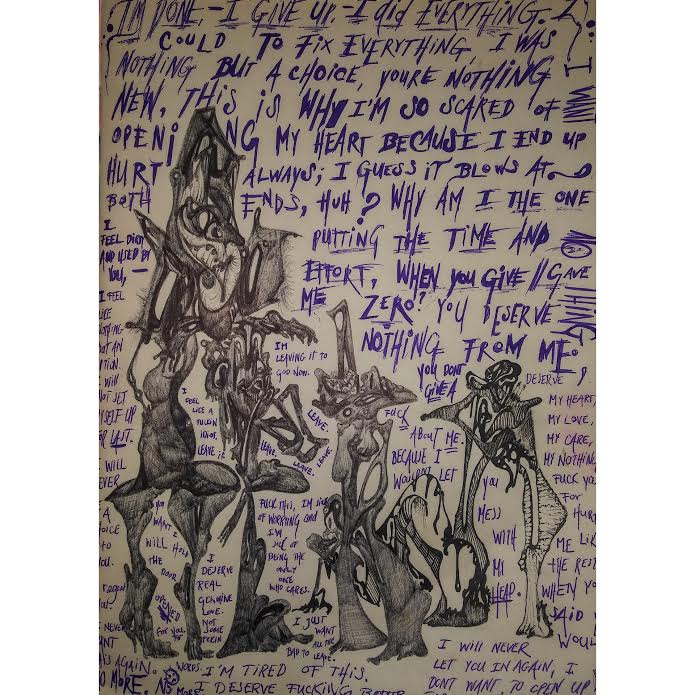 I'M DONE, - I GIVE UP. - I did EVERYTHING. I
COULD TO FIX EVERYTHING, I WAS
NOTHING BUT A CHOICE, YOURE NOTHING
NEW, THIS IS WHY I'M SO SCARED OF
OPENING MY HEART BECAUSE I END UP
HURT ALWAYS; I GUESS IT BLOWS AT
BOTH ENDS, HUH? WHY AM I THE ONE
PUTTING THE TIME AND
EFFORT, WHEN YOU GIVE // GAVE
ME ZERO? YOU DESERVE
NOTHING FROM ME.
I
FEEL DIRTY
AND USED BY
YOU, —
I FEEL
LIKE
NOTHING
BUT AN
I WILL
NOT SET
MYSELF UP
I WILL
EVER
A
CHOICE
TO
YOU.
IM
LEAVING IT TO
GOD NOW.
I
FEEL
LIKE A
IDIOT.
LEAVE
LEAVE.
LEAVE.
LEAVE.
LEAVE.
YOU DONT
GIVE A
FUCK
ABOUT ME.
BECAUSE I
WOULDNT LET
YOU
MESS
WITH
MY
HEAD.
DESERVE
MY HEART,
MY LOVE,
MY CARE,
MY NOTHING
FUCK YOU
FOR
HURT
ME LIKE
THE REST
WHEN YOU
SAID
WOULD
FUCK THIS, IM SICK
OF WORRYING AND
I'M
SICK OF
BEING THE
ONLY
ONE
WHO CARES.
YOU
WANT I
WILL HOLD
THE
DOOR
OPENED
FOR YOU.
I
DESERVE
REAL
GENUINE
LOVE.
NOT
SOME
I JUST
WANT
ALL THE
BAD TO LEAVE.
WORDS. I'M TIRED OF THIS.
I DESERVE FUCKING
I WILL NEVER
LET YOU IN AGAIN, I
DONT WANT TO OPEN UP
AGAIN.
NO MORE, NO
MORE